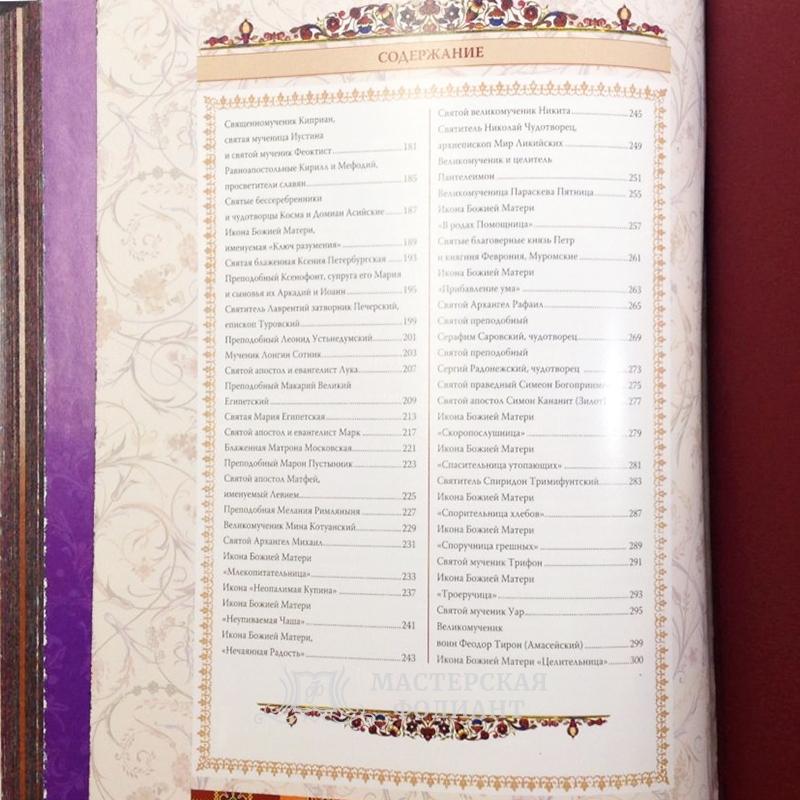 СОДЕРЖАНИЕ
Священномученик Киприан,
святая мученица Иустина
и святой мученик Феоктист 181
Равноапостольные Кирилл и Мефодий,
просветители славян 185
Святые бессеребренники
и чудотворцы Косма и Домиан Асийские 187
Икона Божией Матери,
именуемая «Ключ разумения» 189
Святая блаженная Ксения Петербургская 193
Преподобный Ксенофонт, супруга его Мария
и сыновья их Аркадий и Иоанн 195
Святитель Лаврентий затворник Печерский,
епископ Туровский 199
Преподобный Леонид Устьнедумский 201
Мученик Лонгин Сотник 203
Святой апостол и евангелист Лука 207
Преподобный Макарий Великий
Египетский 209
Святая Мария Египетская 213
Святой апостол и евангелист Марк 217
Блаженная Матрона Московская 221
Преподобный Марон Пустынник 223
Святой апостол Матфей,
именуемый Левием 225
Преподобная Мелания Римляныня 227
Великомученик Мина Котуанский 229
Святой Архангел Михаил 231
Икона Божией Матери
«Млекопитательница» 233
Икона «Неопалимая Купина» 237
Икона Божией Матери
«Неупиваемая Чаша» 241
Икона Божией Матери,
«Нечаянная Радость» 243
Святой великомученик Никита 245
Святитель Николай Чудотворец,
архиепископ Мир Ликийских 249
Великомученик и целитель
Пантелеимон 251
Великомученица Параскева Пятница 255
Икона Божией Матери
«В родах Помощница» 257
Святые благоверные князь Петр
и княгиня Феврония, Муромские 261
Икона Божией Матери
«Прибавление ума» 263
Святой Архангел Рафаил 265
Святой преподобный
Серафим Саровский, чудотворец 269
Святой преподобный
Сергий Радонежский, чудотворец 273
Святой праведный Симеон Богоприимец 275
Святой апостол Симон Кананит (Зилот) 277
Икона Божией Матери
«Скоропослушница» 279
Икона Божией Матери
«Спасительница утопающих» 281
Святитель Спиридон Тримифунтский 283
Икона Божией Матери
«Спорительница хлебов» 287
Икона Божией Матери
«Споручница грешных» 289
Святой мученик Трифон 291
Икона Божией Матери
«Троеручица» 293
Святой мученик Уар 295
Великомученик
воин Феодор Тирон (Амасейский) 299
Икона Божией Матери «Целительница» 300
МАСТЕРСКАЯ
ФОЛИАНТ